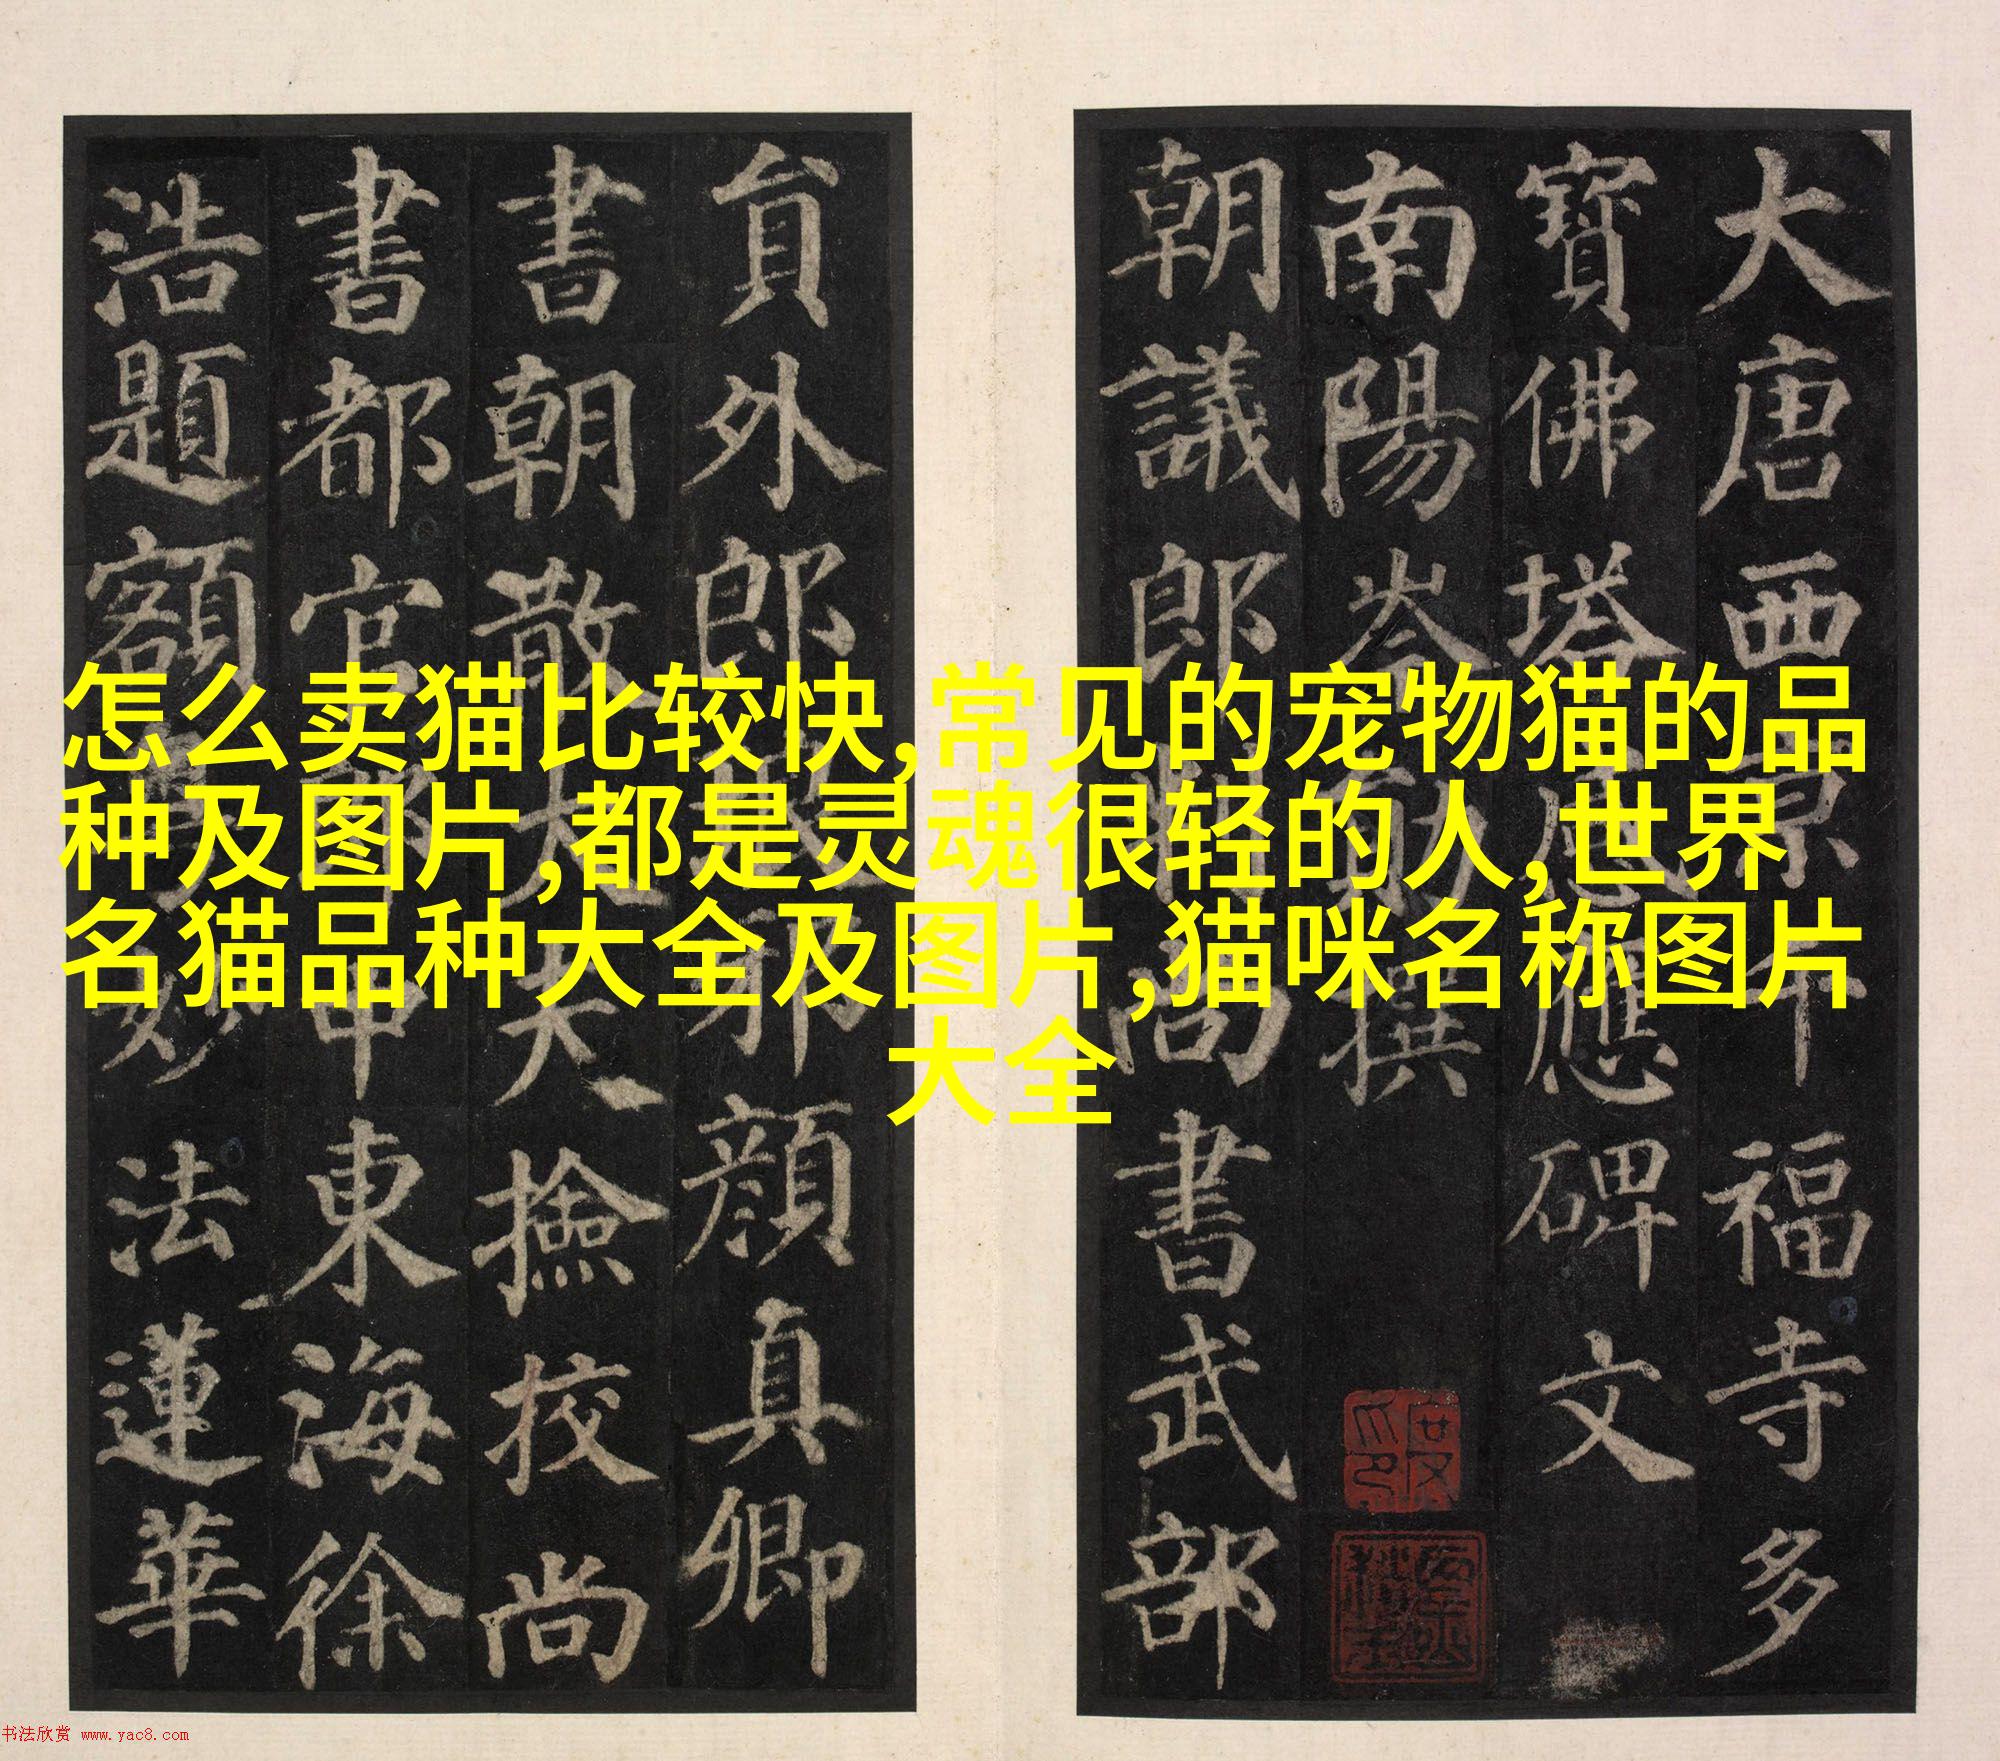 大唐西京千福寺多
寶佛塔感應碑文
南陽岑勛撰
朝議郎判尚書武部
貟外郎琅邪顏真卿
書朝散大夫撿校尚
書都官郎中東海徐
浩題額粵妙法蓮華
怎么卖猫比较快,常见的宠物猫的品
种及图片,都是灵魂很轻的人,世界
名猫品种大全及图片,猫咪名称图片
大全
书法欣赏 www.yac8.com